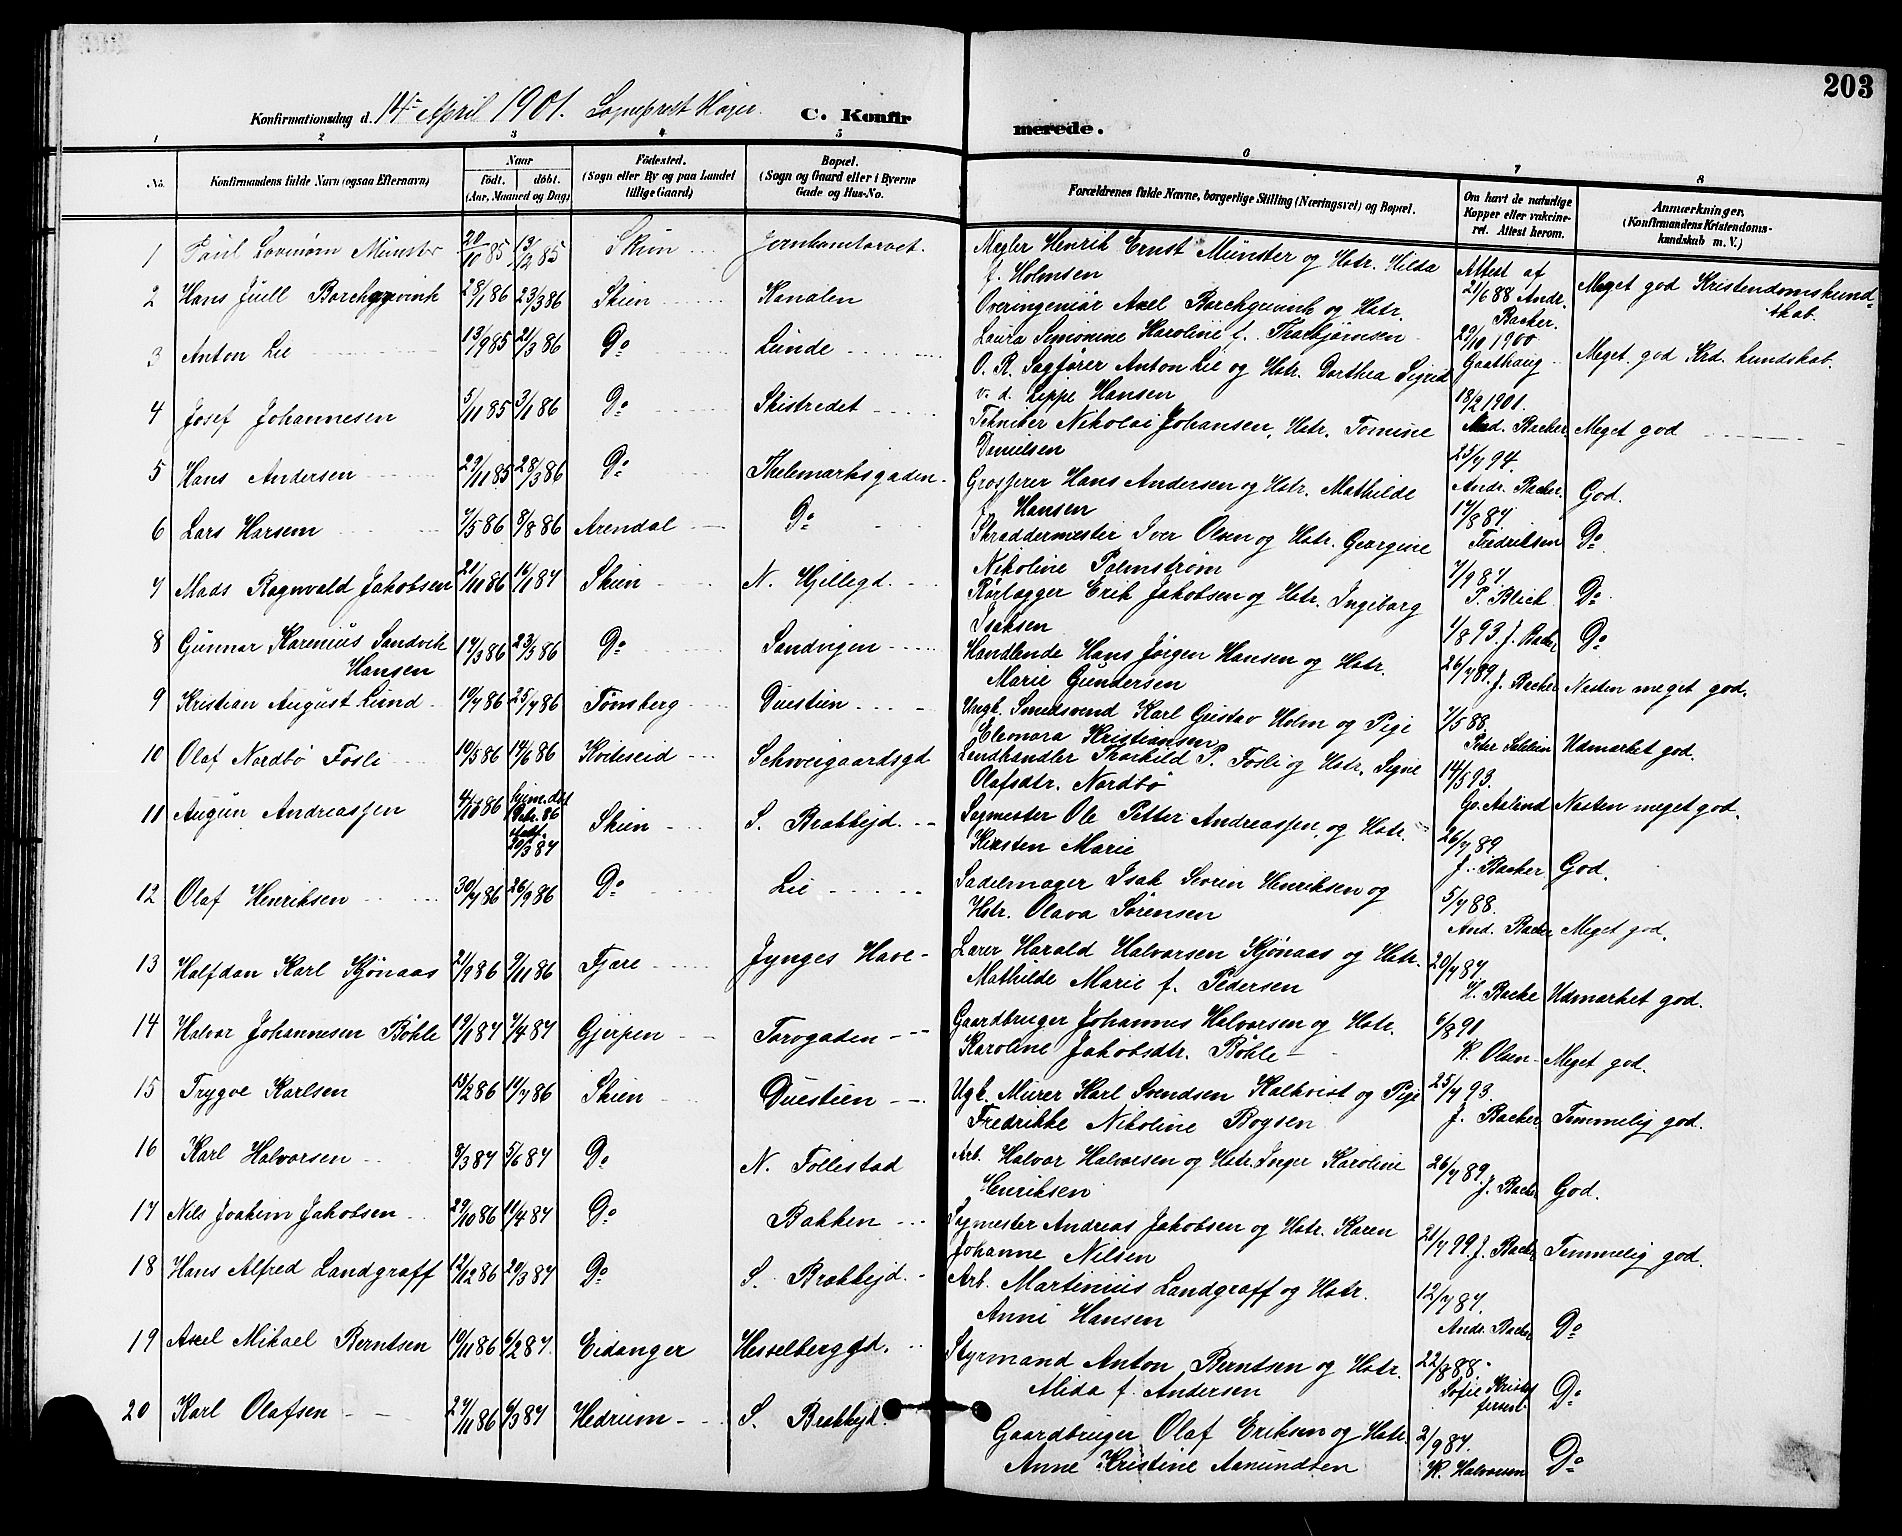 203
Konfirmationsdag d. 14de April 1901. Sogneprest Høyer. C. Konfirmerede.
1 2 3 4 5 6 7 8
No. Konfirmandens fulde Navn (ogsaa Efternavn) Naar født. døbt. (Aar, Maaned og Dag) Fødested. (Sogn eller By og paa Landet tillige Gaard) Bopæl. (Sogn og Gaard eller i Byerne Gade og Hus-No. Forældrenes fulde Navne, borgerlige Stilling (Næringsvei) og Bopæl. Om havt de naturlige Kopper eller vakcineret. Attest herom. Anmærkninger. (Konfirmandens Kristendomskundskab m. V.)
1 Paul Løvenørn Münster 20/10 85 13/12 85 Skien Jernbanetorvet. Megler Henrik Ernst Münster og Hstr. Hilda
f. Holmsen Attest af 21/6 88 Andr. Backer. Meget god Kristendomskundskab.
2 Hans Juell Borchgrevink 28/1 86 23/3 86 Skien Kanalen Overingeniør Axel Borchgrevink og Hstr.
Laura Semimine Karoline f. Thorbjørnsen 29/10 1900 Gaathaug Meget god Krd. kundskab.
3 Anton Lie 13/9 85 21/3 86 Do Lunde O. R. Sagfører Anton Lie og Hstr. Dorthea Sigrid
v. d. Lippe Hansen 18/2 1901. And. Backer Meget god
4 Josef Johannesen 5/11 85 3/1 86 Do Skistredet Tekniker Nikolai Johansen, Hstr. Tomine
Danielsen 25/7 94. Andr. Backer God.
5 Hans Andersen 29/11 85 28/3 86 Do Thelemarksgaden Grosserer Hans Andersen og Hstr. Mathilde
f. Hansen 17/8 87. Fredriksen Do
6 Lars Harsem 7/5 86 8/8 86 Arendal Do Skræddermester Iver Olsen og Hstr. Georgine
Nikoline Palmstrøm 7/9 87. P. Blich Do
7 Mads Ragnvald Jakobsen 21/11 86 16/1 87 Skien N. Hjellegd. Rørlægger Erik Jakobsen og Hstr. Ingeborg
Isaksen 1/8 93. J. Backer Do
8 Gunnar Karenius Sandvik
Hansen 17/3 86 23/5 86 Do Sandvigen Handlende Hans Jørgen Hansen og Hstr.
Marie Gundersen 26/7 89. J. Backer Næsten meget god.
9 Kristian August Lund 10/7 86 25/7 86 Tønsberg Duestien Ungk. Smedsvend Karl Gustav Holm og Pige
Eleonora Kristiansen 7/5 88 Peter Udmærket god.
10 Olaf Nordbø Fosli 10/5 86 14/6 86 Kviteseid Schweigaardsgd Landhandler Thorkild P. Fosli og Hstr. Signe
Olafsdtr. Nordbø 14/5 93. Go. Aslind Næsten meget god.
11 Augun Andreassen 4/10 86 hjem. døbt 20/3 87 Skien S. Brækkejd. Sagmester Ole Petter Andreassen og Hstr.
Kirsten Marie 26/7 89 J. Backer God.
12 Olaf Henriksen 30/7 86 26/9 86 Do Lie Sadelmager Isak Severin Henriksen og
Hstr. Olava Sørensen 5/7 88. And. Backer Meget god.
13 Halfdan Karl Kjønaas 21/9 86 9/11 86 Fjære Jynges Have Lærer Harald Halvorsen Kjønaas og Hstr.
Mathilde Marie f. Pedersen 20/7 87. H. Backe Udmærket god.
14 Halvor Johannesen Bøhle 19/1 87 7/4 87 Gjerpen Torvgaden Gaardbruger Johannes Halvorsen og Hstr.
Karoline Jakobsdtr. Bøhle 6/8 91 K. Olsen Meget god.
15 Trygve Karlsen 13/2 86 11/7 86 Skien Duestien Ugk. Murer Karl Svendsen Kalkvist og Pige
Fredrikke Nikoline Bogsen 25/7 93. J. Backer Temmelig god.
16 Karl Halvorsen 9/3 87 5/6 87 Do N. Follestad Arb. Halvor Halvorsen og Hstr. Inger Karoline
Henriksen 26/7 89. J. Backer God.
17 Nils Joakim Jakobsen 29/10 86 11/4 87 Do Bakken Sagmester Andreas Jakobsen og Hstr. Karen
Johanne Nilsen 21/7 99 J. Backer Temmelig god.
18 Hans Alfred Landgraff 12/12 86 20/3 87 Do S. Brækkejd. Arb. Martinius Landgraff og Hstr.
Anne Hansen 12/7 87. Andr. Backer Do
19 Axel Mikael Berntsen 10/11 86 6/2 87. Eidanger Hesselberggd. Styrmand Anton Berntsen og Hstr.
Alida f. Andersen 22/8 88. Sofie Do
20 Karl Olafsen 27/11 86 6/3 87 Hedrum S. Brækkejd. Gaardbruger Olaf Eriksen og Hstr.
Anne Kristine Aamundsen 2/9 87. K. Halvorsen Do